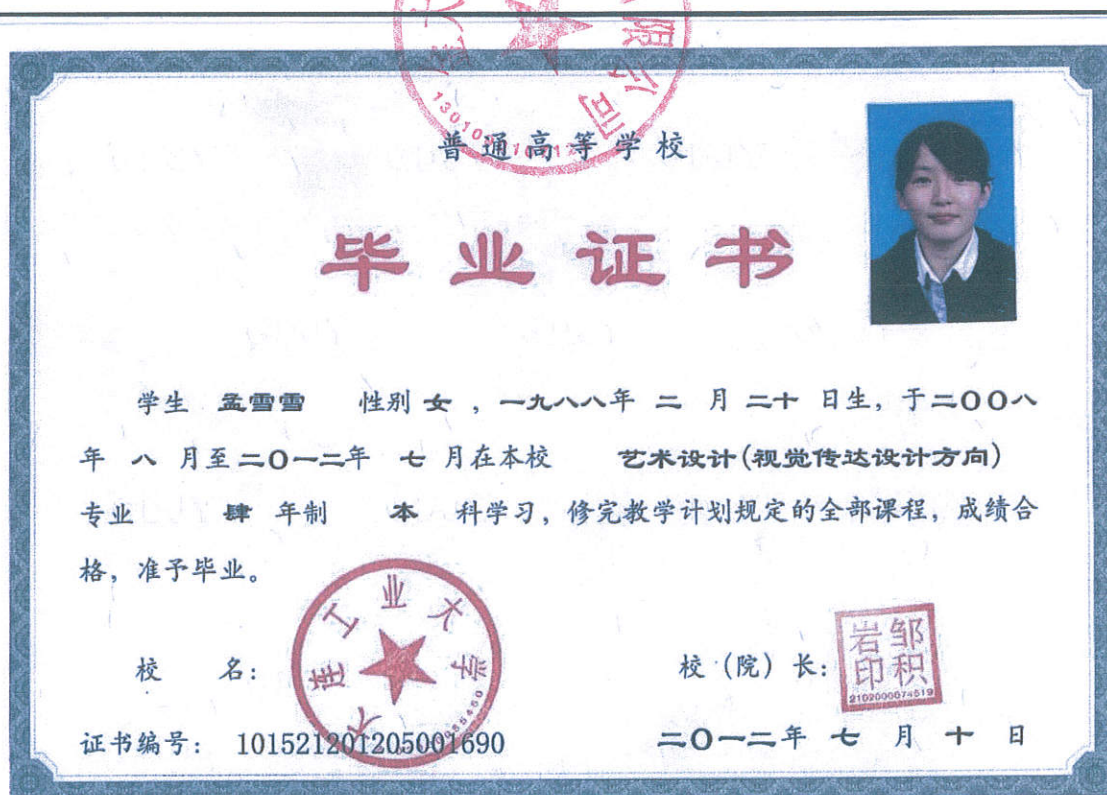 限公司
普通高等学校
毕业证书
学生 孟雪雪 性别 女 ，一九八八年 二 月 二十 日生，于二〇〇八
年 八 月至二〇一二年 七 月在本校 艺术设计(视觉传达设计方向)
专业 肆 年制 本 科学习，修完教学计划规定的全部课程，成绩合
格，准予毕业。
大连工业大学
校 名：
校（院）长：
邹积岩印
2102000074519
证书编号： 101521201205001690
二〇一二年 七 月 十 日